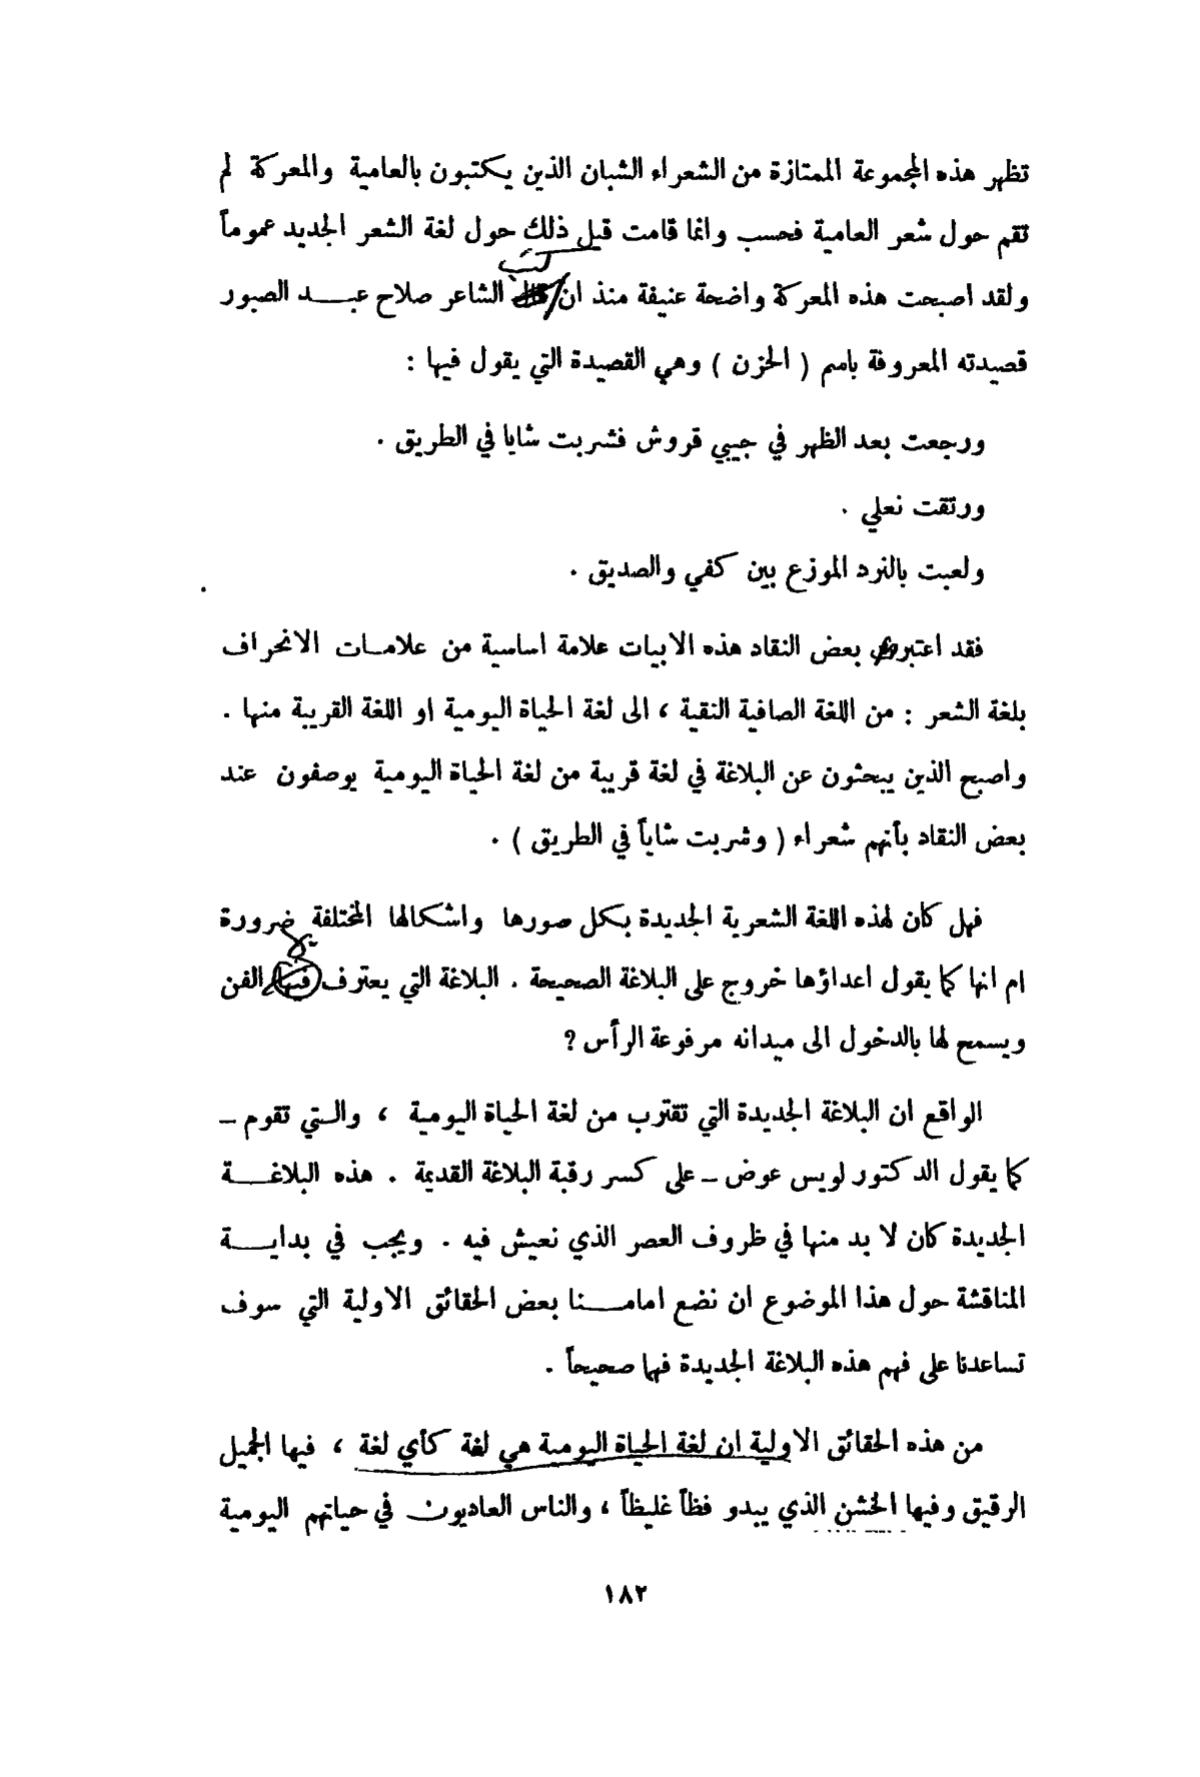 تظهر هذه المجموعة الممتازة من الشعراء الشبان الذين يكتبون بالعامية والمعركة لم
تقم حول شعر العامية فحسب وانما قامت قبل ذلك حول لغة الشعر الجديد عموماً
كتب
ولقد اصبحت هذه المعركة واضحة عنيفة منذ ان الشاعر صلاح عبد الصبور
قصيدته المعروفة باسم ( الحزن ) وهي القصيدة التي يقول فيها :
ورجعت بعد الظهر في جيبي قروش فشربت شايا في الطريق .
ورتقت نعلي .
ولعبت بالنرد الموزع بين كفي والصديق .
فقد اعتبر بعض النقاد هذه الابيات علامة اساسية من علامات الانحراف
بلغة الشعر : من اللغة الصافية النقية ، الى لغة الحياة اليومية او اللغة القريبة منها .
واصبح الذين يبحثون عن البلاغة في لغة قريبة من لغة الحياة اليومية يوصفون عند
بعض النقاد بأنهم شعراء ( وشربت شاياً في الطريق ) .
فهل كان لهذه اللغة الشعرية الجديدة بكل صورها واشكالها المختلفة ضرورة
بها
ام انها كما يقول اعداؤها خروج على البلاغة الصحيحة . البلاغة التي يعترف فيها الفن
ويسمح لها بالدخول الى ميدانه مرفوعة الرأس ؟
الواقع ان البلاغة الجديدة التي تقترب من لغة الحياة اليومية ، والتي تقوم ــ
كما يقول الدكتور لويس عوض ــ على كسر رقبة البلاغة القديمة . هذه البلاغة
الجديدة كان لا بد منها في ظروف العصر الذي نعيش فيه . ويجب في بداية
المناقشة حول هذا الموضوع ان نضع امامنا بعض الحقائق الاولية التي سوف
تساعدنا على فهم هذه البلاغة الجديدة فهما صحيحاً .
من هذه الحقائق الاولية ان لغة الحياة اليومية هي لغة كأي لغة ، فيها الجميل
الرقيق وفيها الخشن الذي يبدو فظاً غليظاً ، والناس العاديون في حياتهم اليومية
١٨٢